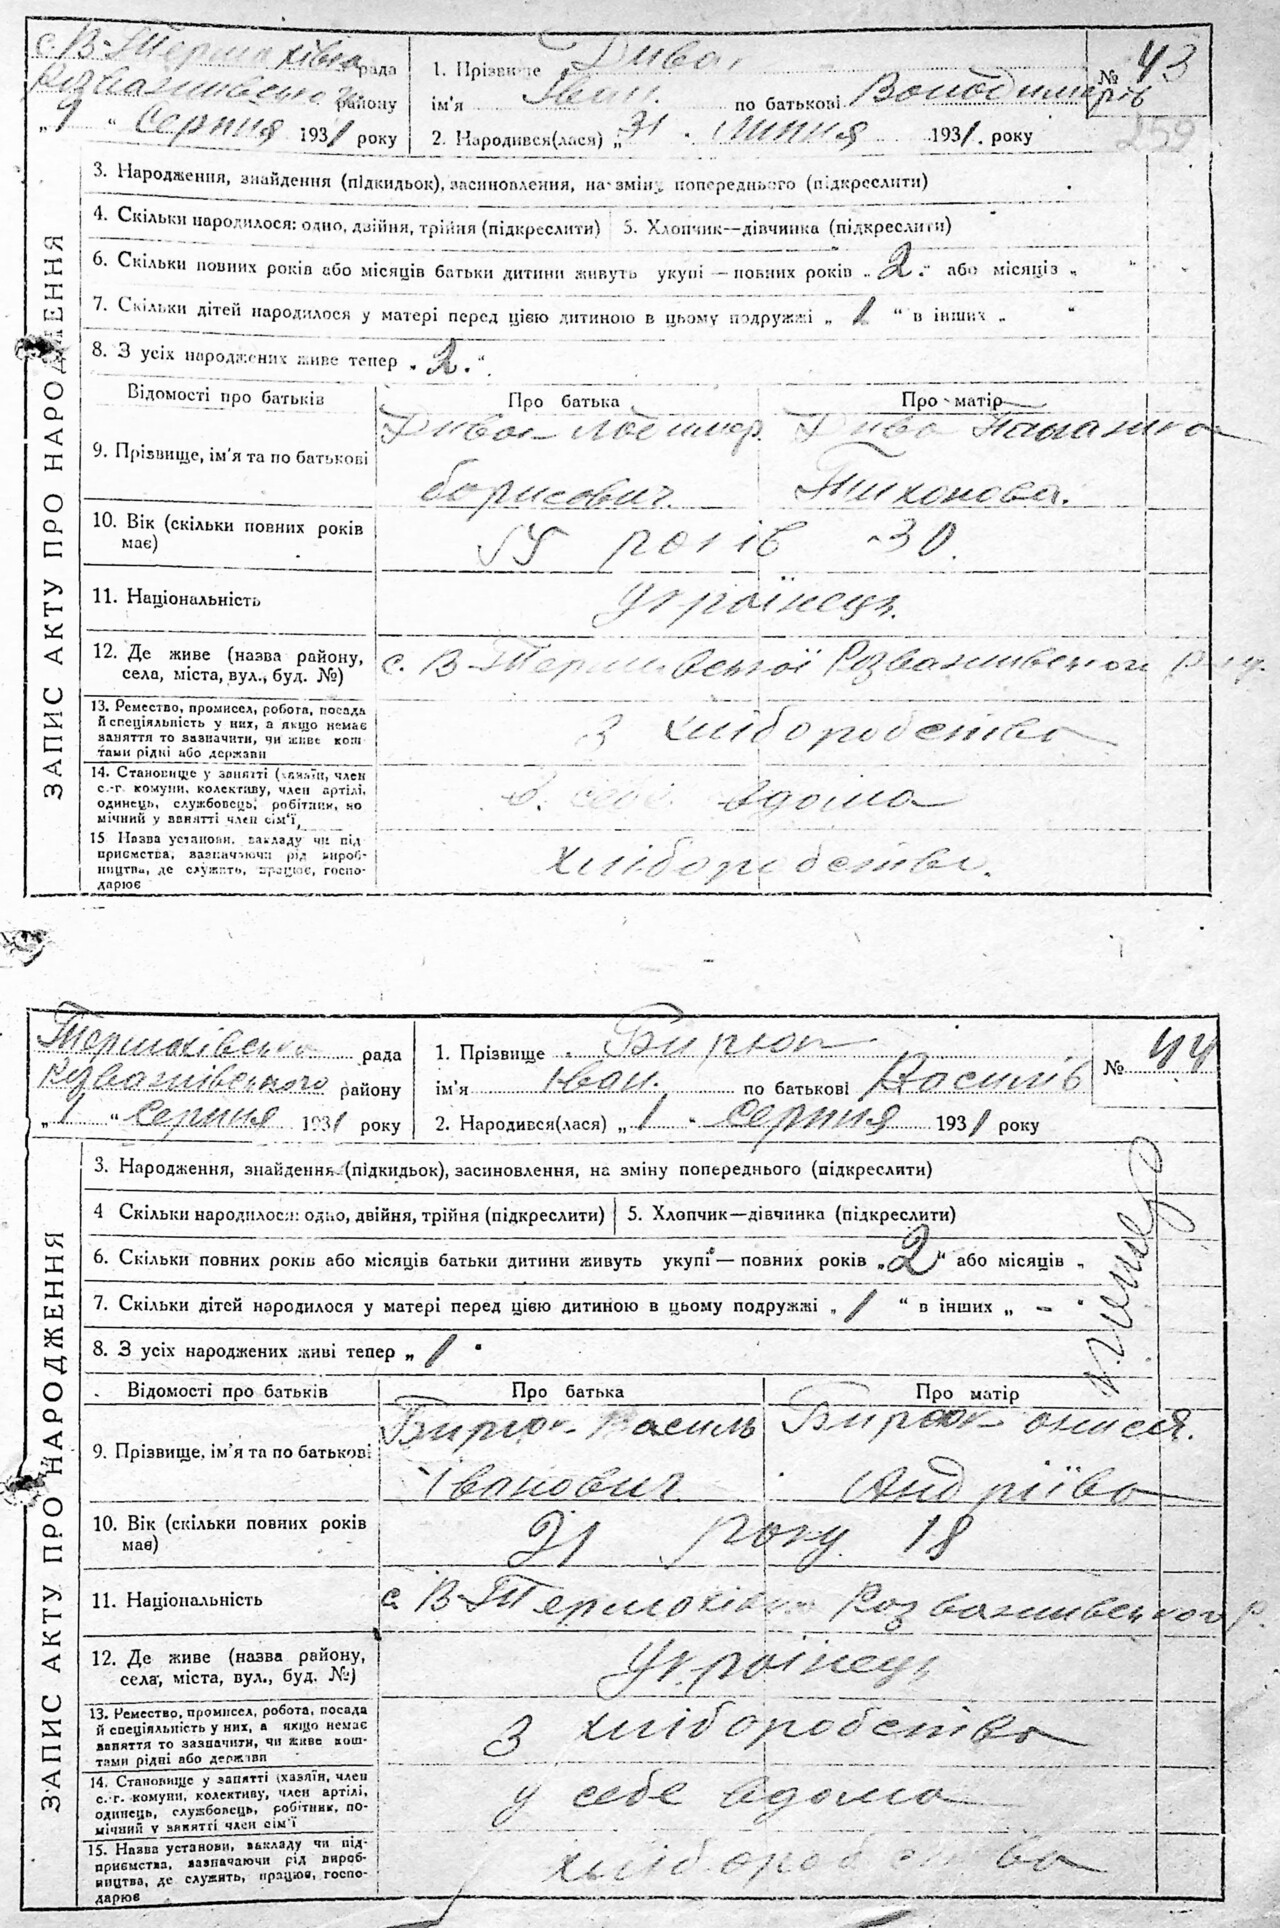 с. В-Термахівка рада
Розважівського району
„ 1 “ Серпня 1931 року
1. Прізвище Дива.
ім'я Іван. по батькові Володимирів
2. Народився(лася) „ 31 . липня 1931. року
№ 43
259
ЗАПИС АКТУ ПРО НАРОДЖЕННЯ
3. Народження, знайдення (підкидьок), засиновлення, на зміну попереднього (підкреслити)
4. Скільки народилося: одно, двійня, трійня (підкреслити) 5. Хлопчик—дівчинка (підкреслити)
6. Скільки повних років або місяців батьки дитини живуть укупі — повних років „ 2. “ або місяців „ “
7. Скільки дітей народилося у матері перед цією дитиною в цьому подружжі „ 1 “ в інших „ “
8. З усіх народжених живе тепер „ 2. “.
Відомості про батьків Про батька Про матір
9. Прізвище, ім'я та по батькові
Дива Дива
борисович. Тихонова.
10. Вік (скільки повних років має)
років 30.
11. Національність
Українець.
12. Де живе (назва району, села, міста, вул., буд. №)
с. В
13. Ремество, промисел, робота, посада й спеціяльність у них, а якщо немає заняття то зазначити, чи живе коштами рідні або держави
З хліборобства
14. Становище у занятті (хазяїн, член с.-г. комуни, колективу, член артілі, одинець, службовець, робітник, помічний у занятті член сім'ї,
вдома
15 Назва установи, закладу чи підприємства, зазначаючи рід виробництва, де служить, працює, господарює
хліборобство.
Термахівська рада
Розважівського району
„ 1 “ Серпня 1931 року
1. Прізвище Бирюк
ім'я Іван. по батькові Василів
2. Народився(лася) „ 1 “ Серпня 1931 року
№ 44
ЗАПИС АКТУ ПРО НАРОДЖЕННЯ
3. Народження, знайдення (підкидьок), засиновлення, на зміну попереднього (підкреслити)
4 Скільки народилося: одно, двійня, трійня (підкреслити) 5. Хлопчик—дівчинка (підкреслити)
6. Скільки повних років або місяців батьки дитини живуть укупі — повних років „ 2 “ або місяців „
7. Скільки дітей народилося у матері перед цією дитиною в цьому подружжі „ 1 “ в інших „ – “
8. З усіх народжених живі тепер „ 1 “
Відомості про батьків Про батька Про матір
9. Прізвище, ім'я та по батькові
Бирюк Василь Бирюк онися.
Іванович Андріїва
10. Вік (скільки повних років має)
21 року 18
11. Національність
с. В-Термахівка Розважівського р.
12. Де живе (назва району, села, міста, вул., буд. №)
Українець
13. Ремество, промисел, робота, посада й спеціяльність у них, а якщо немає заняття то зазначити, чи живе коштами рідні або держави
З хліборобства
14. Становище у занятті (хазяїн, член с.-г. комуни, колективу, член артілі, одинець, службовець, робітник, помічний у занятті член сім'ї
у себе вдома
15. Назва установи, закладу чи підприємства, зазначаючи рід виробництва, де служить, працює, господарює
хліборобства